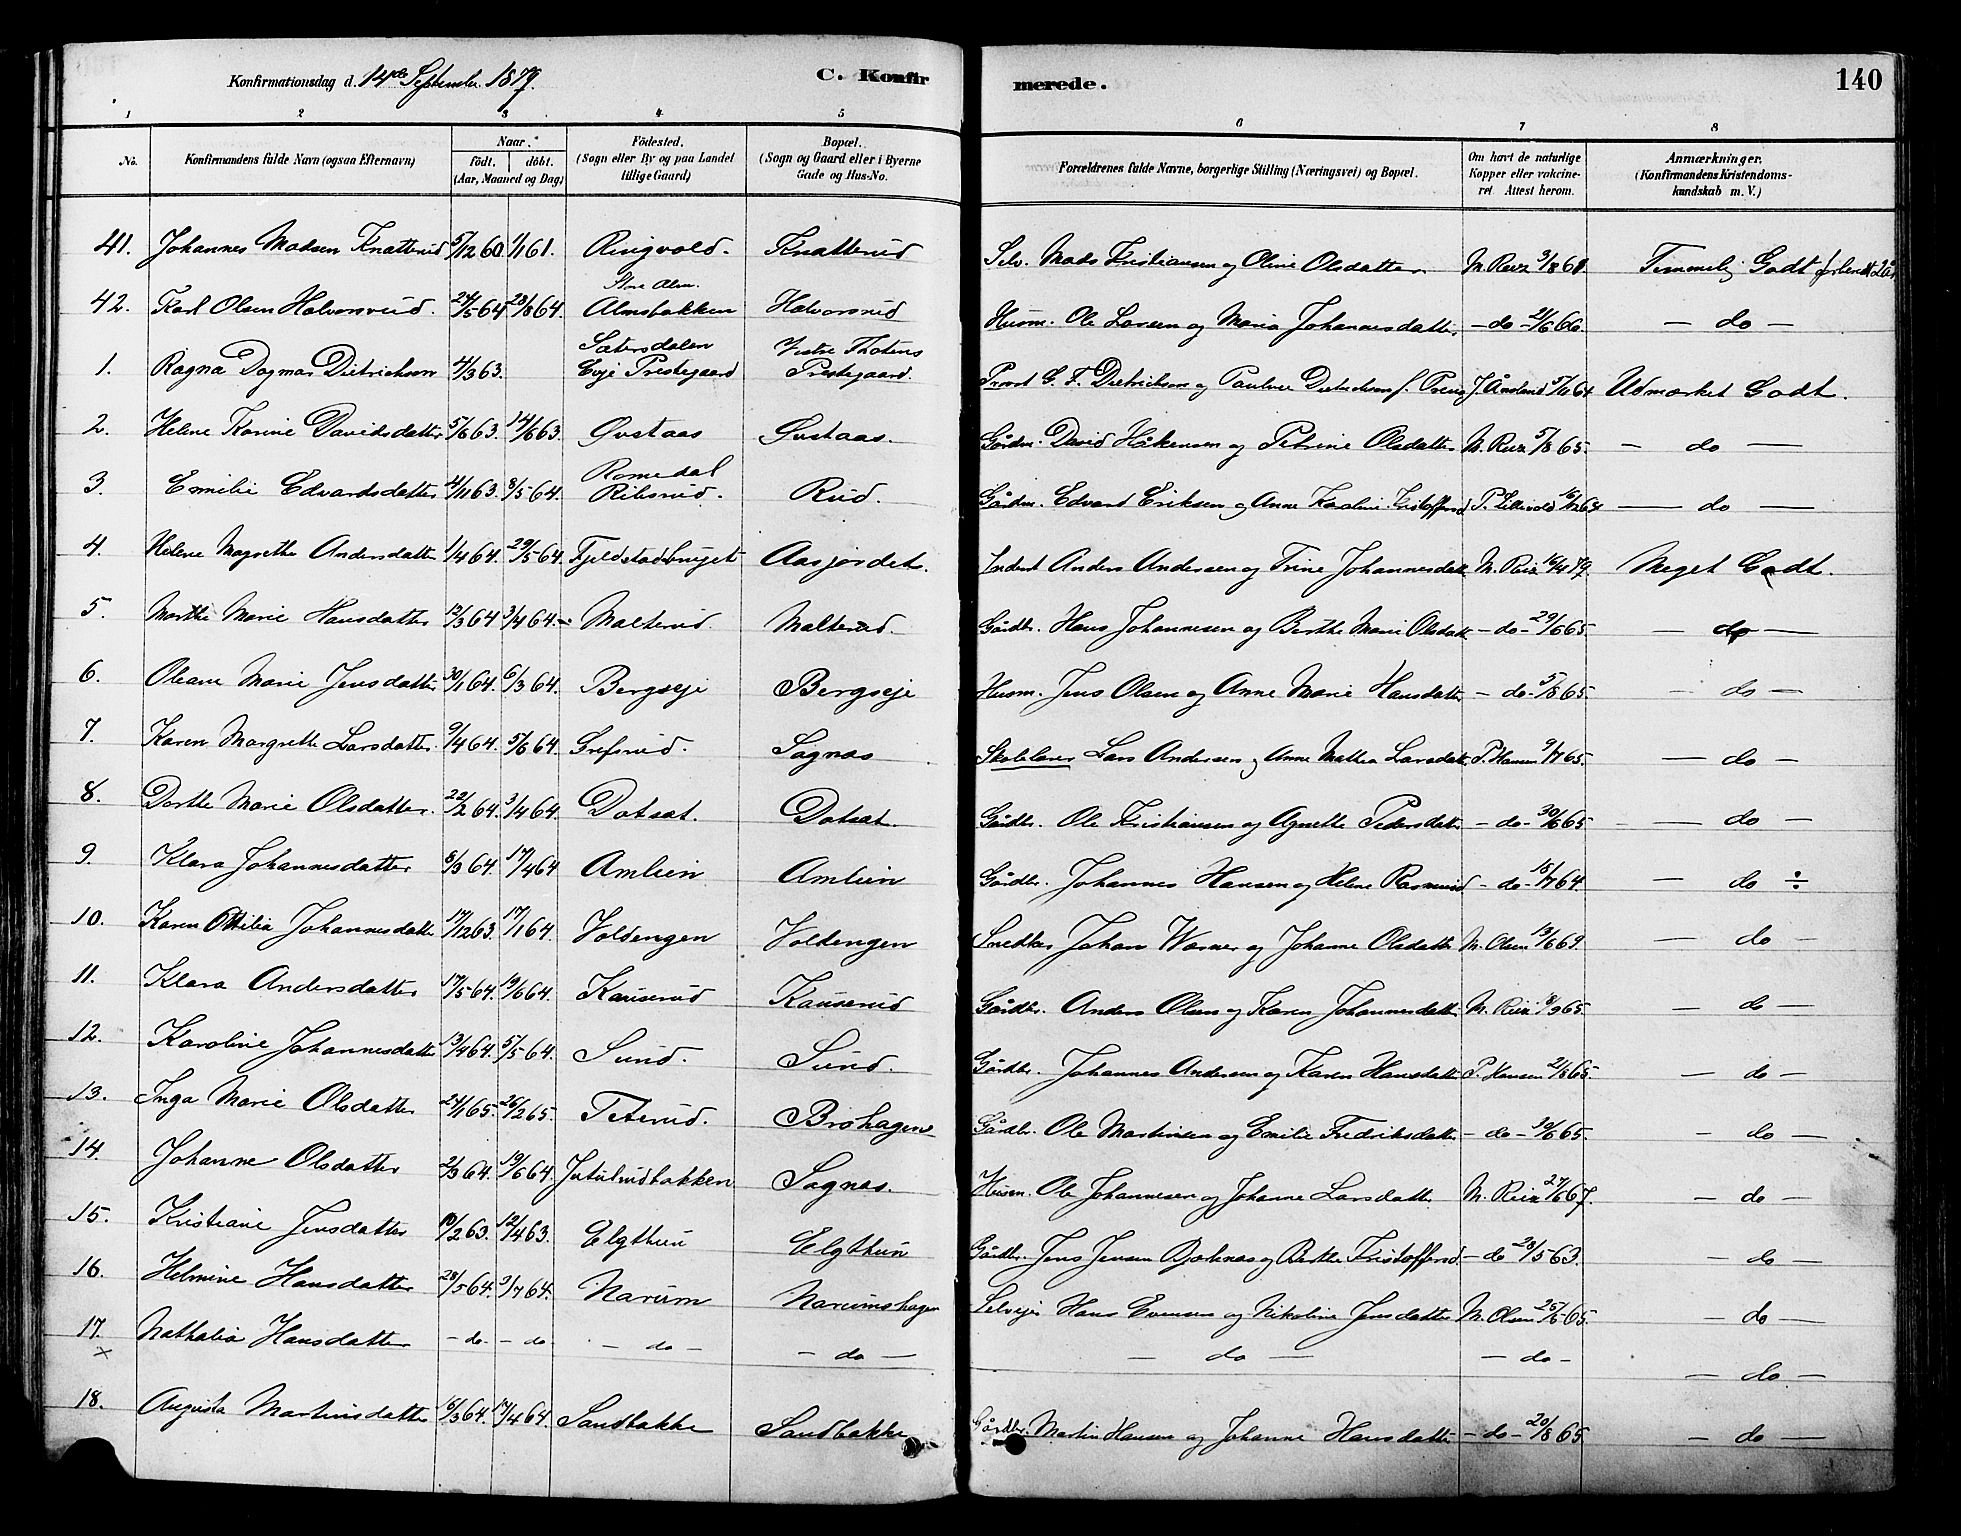 Konfirmationsdag d. 14de September 1879.
C. Konfirmerede.
140
1 2 3 4 5 6 7 8
No. Konfirmandens fulde Navn (ogsaa Efternavn) Naar.* födt. döbt. (Aar, Maaned og Dag) Födested. (Sogn eller By og paa Landet tillige Gaard) Bopæl. (Sogn og Gaard eller i Byerne Gade og Hus-No. Forældrenes fulde Navne, borgerlige Stilling (Næringsvei) og Bopæl. Om havt de naturlige Kopper eller vakcineret. Attest herom. Anmærkninger. (Konfirmandens Kristendomskundskab m. V.)
41. Johannes Madsen Knatterud 5/12 60. 1/1 61. Ringvold. Knatterud Selv. Mads Kristiansen og Oline Olsdatter M. Reiz 3/8 61 Temmelig Godt
42. Karl Olsen Halvorsrud. 24/5 64 28/8 64. Almsbakken Halvorsrud Husm. Ole Larsen og Maria Johannesdatter – do – 21/6 66. – do –
1. Ragna Dagmar Dietrichson 4/3 63. Sætersdalen Evje Prestegaard Vestre Thotens Prestegaard. Provst G. F. Dietrichson og Pauline Dietrichson f. Preus J. Aasland 5/11 64 Udmærket Godt.
2. Helene Karine Davidsdatter 5/6 63. 14/6 63. Øvstaas Øvstaas. Gårdm. David Håkensen og Petrine Olsdatter M. Reiz 5/8 65. – do –
3. Emilie Edvardsdatter 4/11 63. 8/5 64. Romedal Rilsrud. Rud. Gårdm. Edvard Eriksen og Anne Karoline Kristoffersd P. Lillevold – do –
4. Helene Magrethe Andersdatter 1/4 64. 29/5 64. Fjeldstadbruget Aasjordet. Inderst Anders Andersen og Trine Johannesdatt M. Reiz 16/4 79. Meget Godt.
5. Marthe Marie Hansdatter 12/3 64 3/4 64. Malterud. Malterud. Gårdbr. Hans Johannesen og Berthe Marie Olsdatt – do – 29/6 65. – do –
6. Oleane Marie Jensdatter 30/1 64. 6/3 64. Bergseje Bergseje Husm. Jens Olsen og Anne Marie Hansdatter – do – 5/8 65. – do –
7. Karen Margrethe Larsdatter. 9/4 64. 5/6 64. Grefsrud. Sagnas Skolelærer Lars Andersen og Anne Mathea Larsdatt P. Hansen 9/7 65. – do –
8. Dorthe Marie Olsdatter. 22/2 64. 3/4 64. Dotsat. Dotsat. Gårdbr. Ole Kristiansen og Agnethe Pedersdatt – do – 30/6 65 – do –
9. Klara Johannesdatter 8/3 64. 17/4 64 Amlien Amlien Gårdbr. Johannes Hansen og Helene Rasmusd – do – 18/7 64 – do ÷
10. Karen Otilia Johannesdatte 17/12 63. 17/1 64. Voldengen Voldengen Snedker Johan Warner og Johanne Olsdatter M. Olsen 13/6 69. – do –
11. Klara Andersdatter 17/5 64. 19/6 64. Kauserud Kauserud Gårdbr. Anders Olsen og Karen Johannesdatte M. Reiz 8/9 65. – do –
12. Karoline Johannesdatter 13/4 64. 5/5 64. Sund. Sund. Gårdbr. Johannes Andersen og Karen Hansdatt P. Hansen 21/8 65. – do –
13. Inga Marie Olsdatter 24/1 65. 26/2 65. Teterud. Brohagen Gårdbr. Ole Martinsen og Emilie Fredriksdatter – do – 10/6 65. – do –
14. Johanne Olsdatter 2/3 64. 19/6 64. Jutulrudbakken Sagnas. Husm. Ole Johannesen og Johanne Larsdatter M. Reiz 27/6 67. – do –
15. Kristiane Jensdatter 19/2 63. 12/4 63. Elgthun Elgthun Gårdbr. Jens Jensen og Berthe Kristoffersd – do 28/5 63. – do –
16. Helmine Hansdatter 28/5 64. 3/7 64. Narum Narumshagen Selvejer Hans Evensen og Nikoline Jensdatter M. Olsen 25/6 65. – do –
17. Nathalia Hansdatter – do – do – do – – do – – do – – do – – do –
×
18. Augusta Martinsdatter 16/3 64. 17/4 64. Sandbakke Sandbakke Gårdbr. Martin Hansen og Johanne Hansdatter – do – 20/8 65 – do –